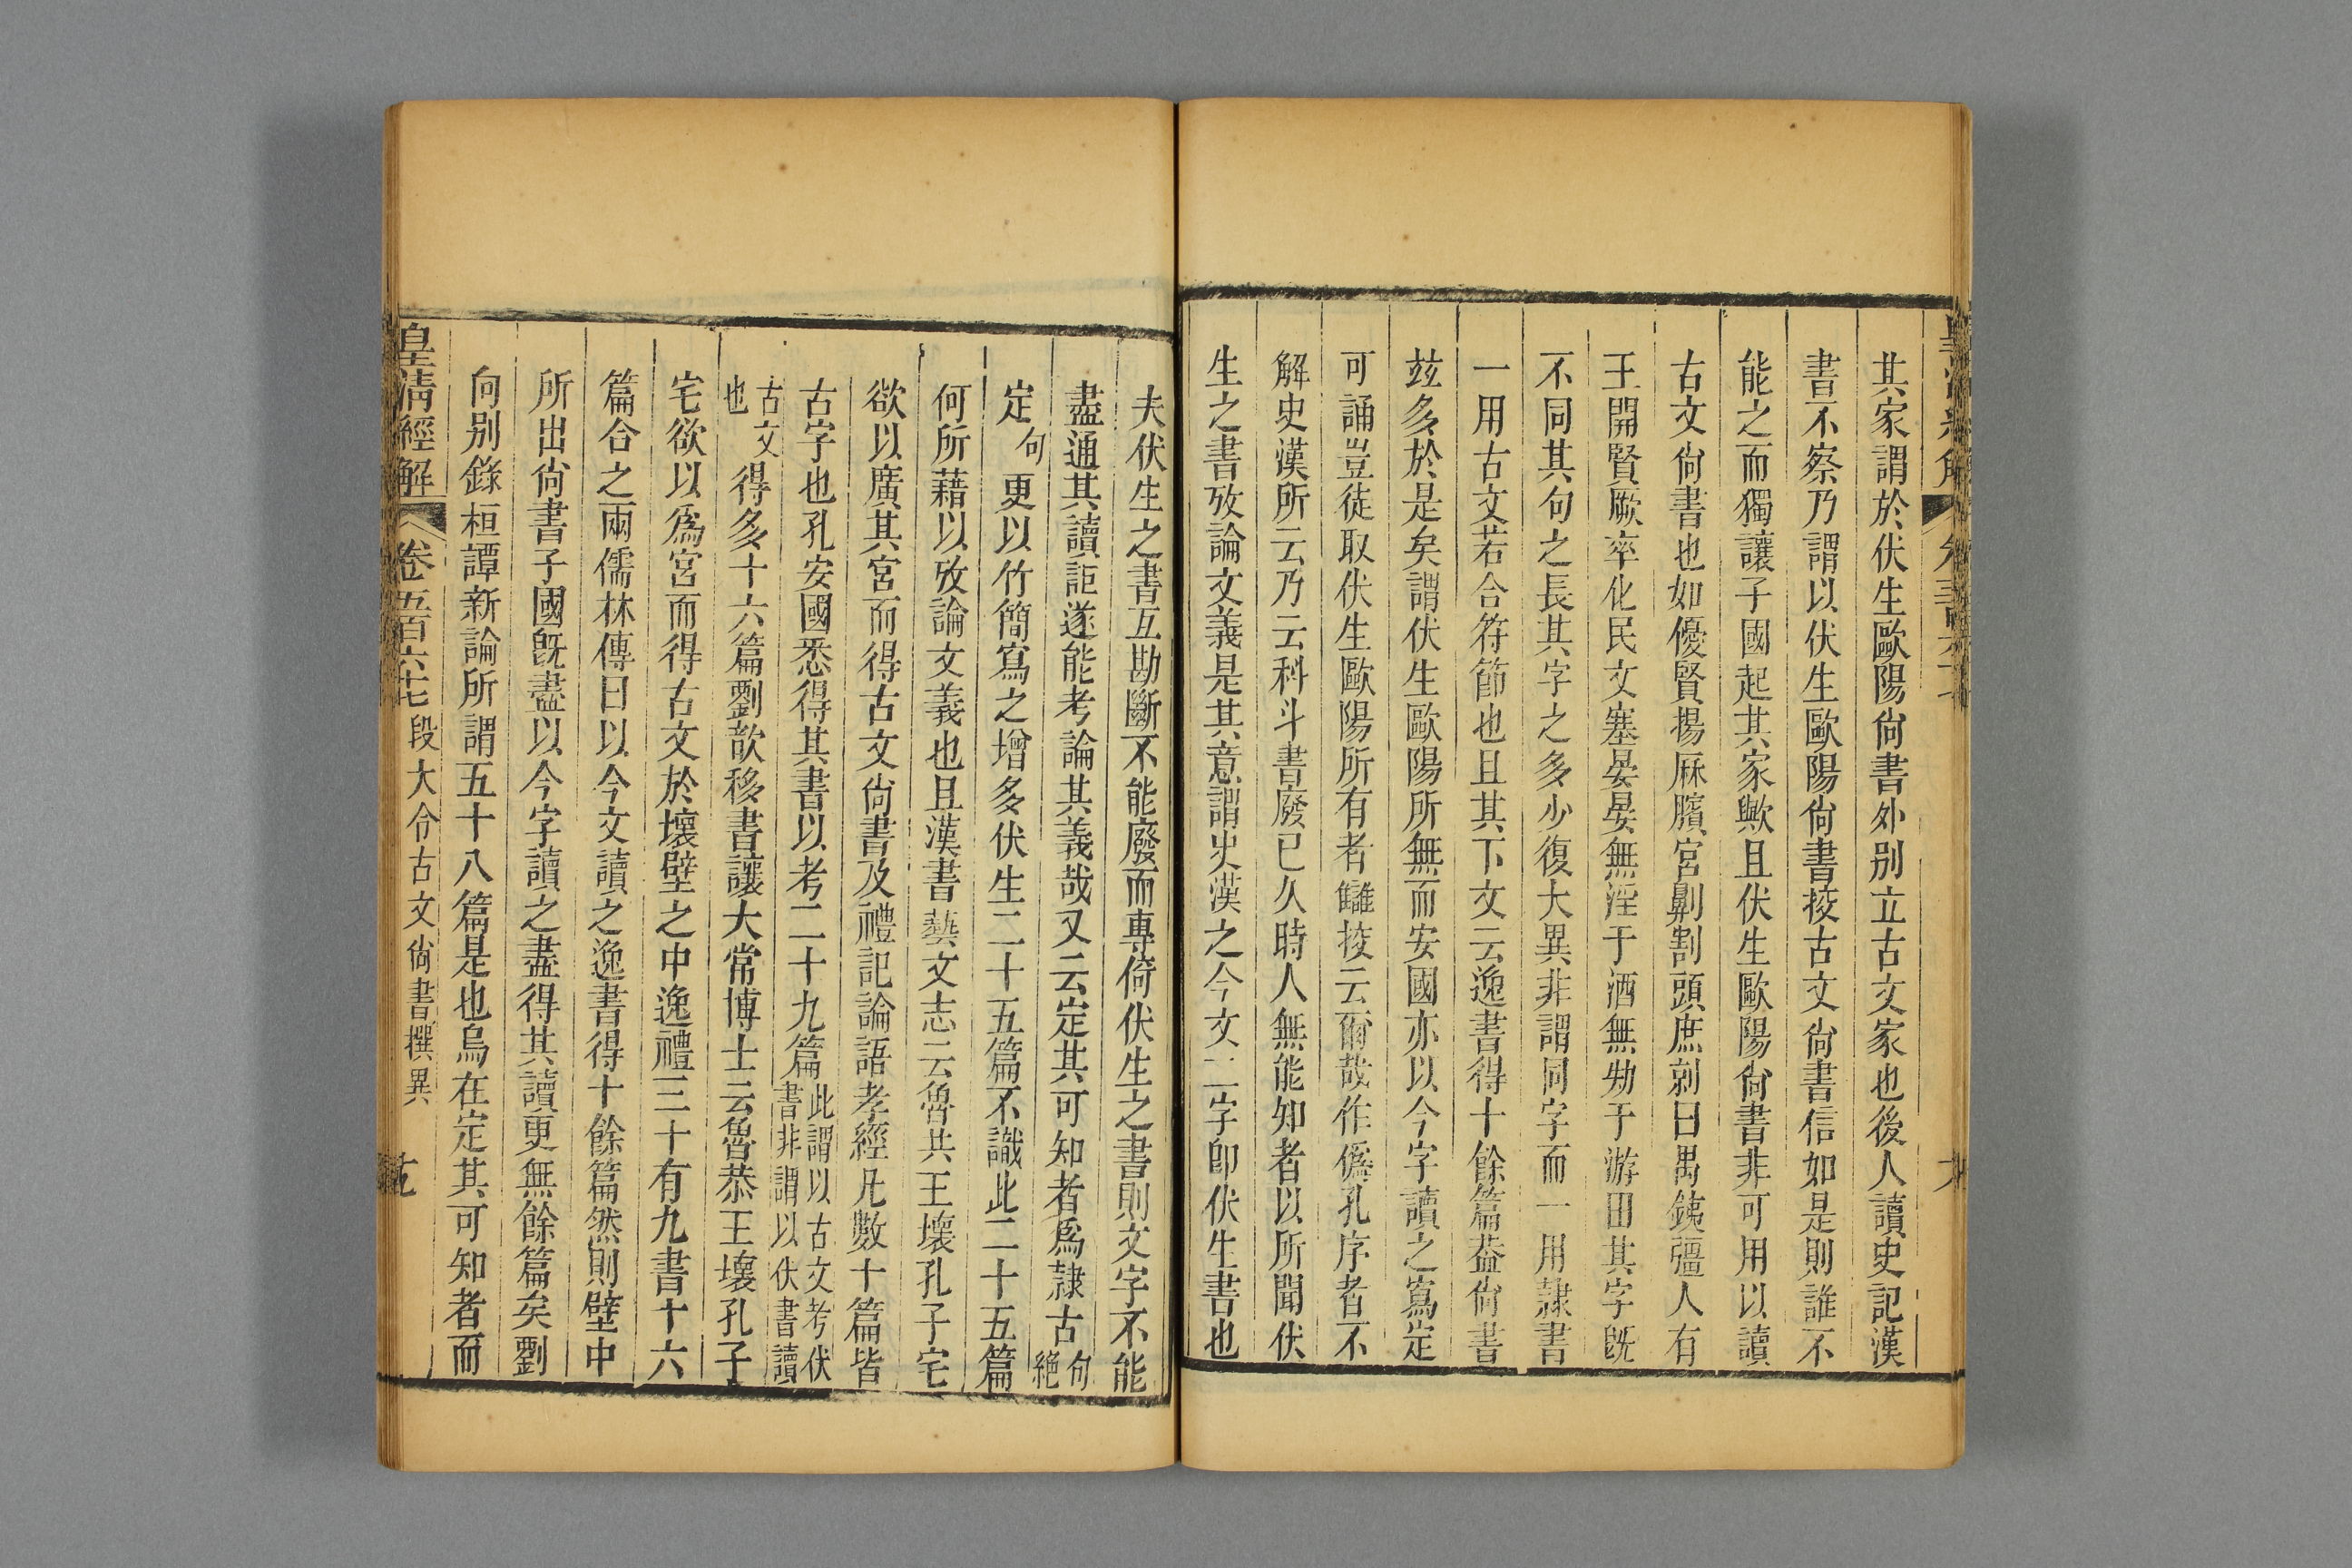 其家謂於伏生歐陽尙書外别立古文家也後人讀史記漢
書不察乃謂以伏生歐陽尙書挍古文尙書信如是則誰不
能之而獨讓子國起其家歟且伏生歐陽尙書非可用以讀
古文尙書也如優賢揚厤臏宮劓割頭庶剠曰禺銕彊人有
王開賢厥率化民文塞晏晏無淫于酒無劮于游田其字旣
不同其句之長其字之多少復大異非謂同字而一用隷書
一用古文若合符節也且其下文云逸書得十餘篇葢尙書
兹多於是矣謂伏生歐陽所無而安國亦以今字讀之寫定
可誦豈徒取伏生歐陽所有者讎挍云爾哉作僞孔序者不
解史漢所云乃云科斗書廢已久時人無能知者以所聞伏
生之書攷論文義是其意謂史漢之今文二字卽伏生書也
夫伏生之書互勘斷不能廢而專倚伏生之書則文字不能
盡通其讀詎遂能考論其義哉又云定其可知者爲隷古句絶
定句更以竹簡寫之增多伏生二十五篇不識此二十五篇
何所藉以攷論文義也且漢書藝文志云魯共王壞孔子宅
欲以廣其宮而得古文尙書及禮記論語孝經凡數十篇皆
古字也孔安國悉得其書以考二十九篇此謂以古文考伏書非謂以伏書讀
古文也得多十六篇劉歆移書讓大常博士云魯恭王壞孔子
宅欲以爲宮而得古文於壞壁之中逸禮三十有九書十六
篇合之兩儒林傳曰以今文讀之逸書得十餘篇然則壁中
所出尙書子國旣盡以今字讀之盡得其讀更無餘篇矣劉
向别錄桓譚新論所謂五十八篇是也烏在定其可知者而
皇清經解 卷五百六十七 段大令古文尙書撰異